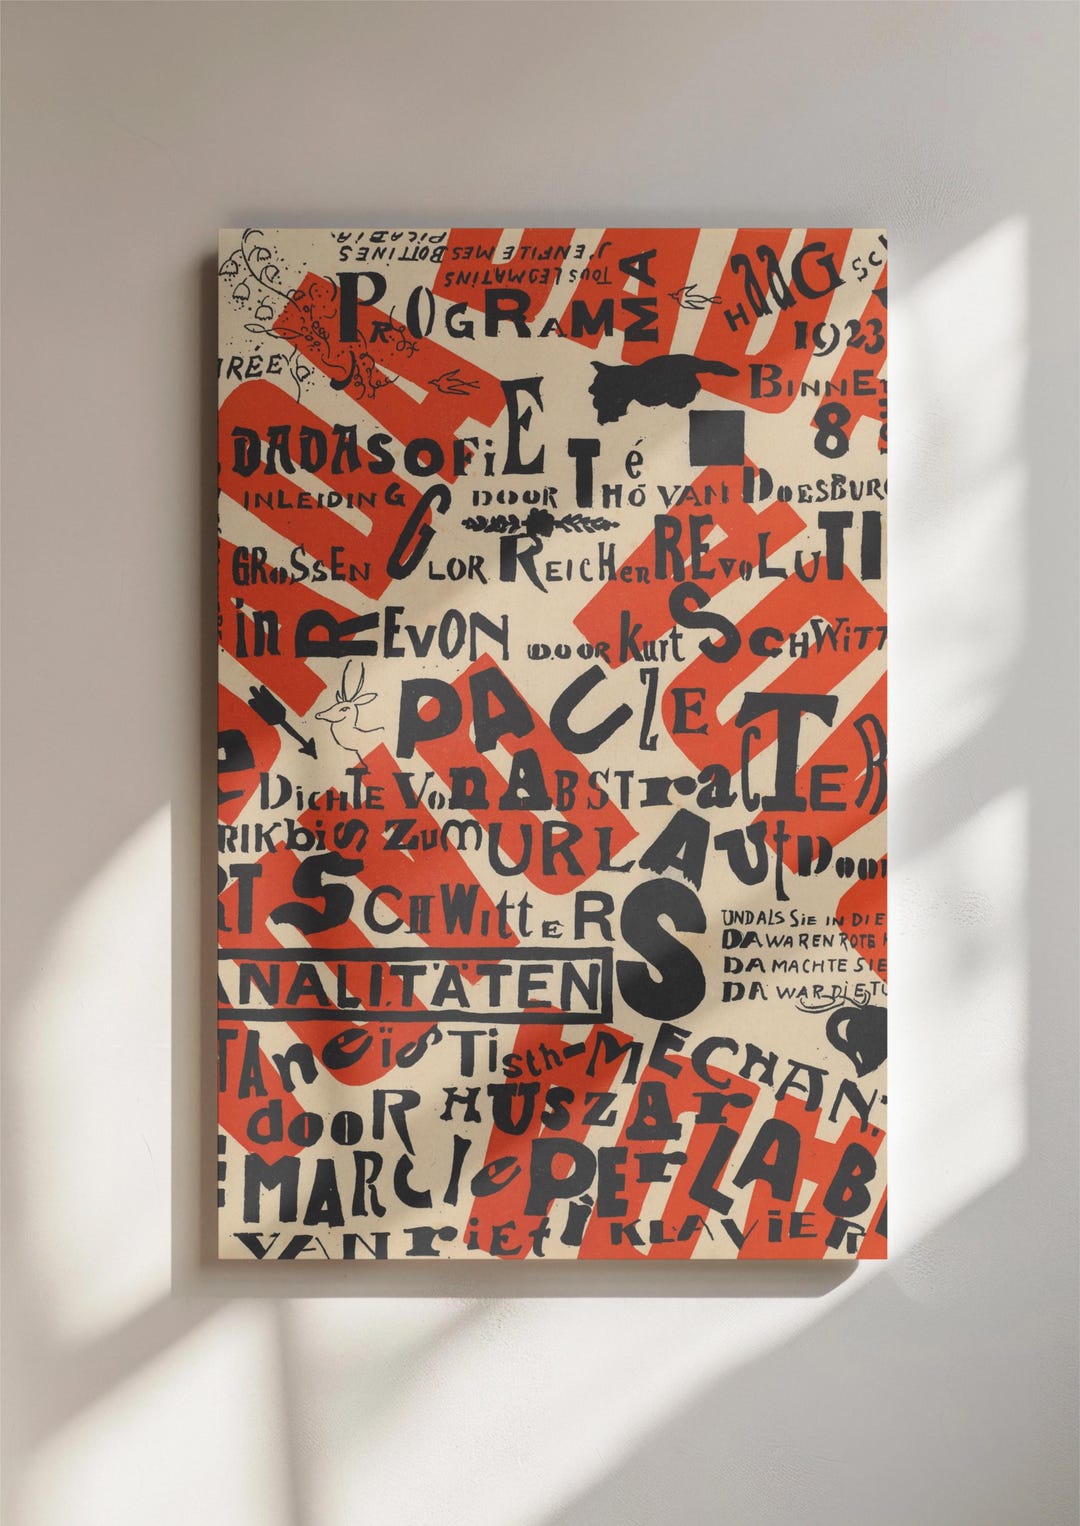 PiCADiA.
J'ENFILE MES BOTTINES
TOUS LES MATINS
PROGRAMMA
HAAG SC
1923
RÉE
BINNE
8
DADASOFIE Té
INLEIDING DOOR THÓ VAN DOESBUR
GROSSEN GLORREICHEN REVOLUTI
in REVON DOOR Kurt SCHWITT
PAUZE
DICHTE VON ABSTRACTER
RIK bis ZUM URLAUT DOOR
RT SCHWITTERS
NALITÄTEN
UND ALS SiE IN DIE
DA WAREN ROTE
DA MACHTE SIE
DA WAR DIE TÜ
TANCEïS TISCH-MECHAN.
door HUSZAR
MARCIE PER LA B
VAN rIETI KLAVIER